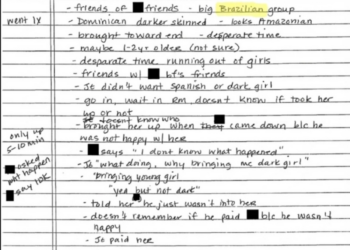 - friends of friends - big Brazilian group
went 1x
- Dominican darker skinned - looks Amazonian
- brought toward end - desperate time
- maybe 1-2yr older (not sure)
- desparate time, running out of girls
- friends w/ bf's friends
- Je didn't want Spanish or dark girl
- go in, wait in RM, doesn't know if took her
up or not
- brought her up when came down b/c he
was not happy w/ her
only up
5-10 min
- says "I dont know what happened"
asked
wht happen
say IDK
- Je "what doing, why bringing me dark girl"
- "bringing young girl
"yea but not dark"
- told her he just wasn't into her
- doesn't remember if he paid b/c he wasn't
happy
- Je paid her